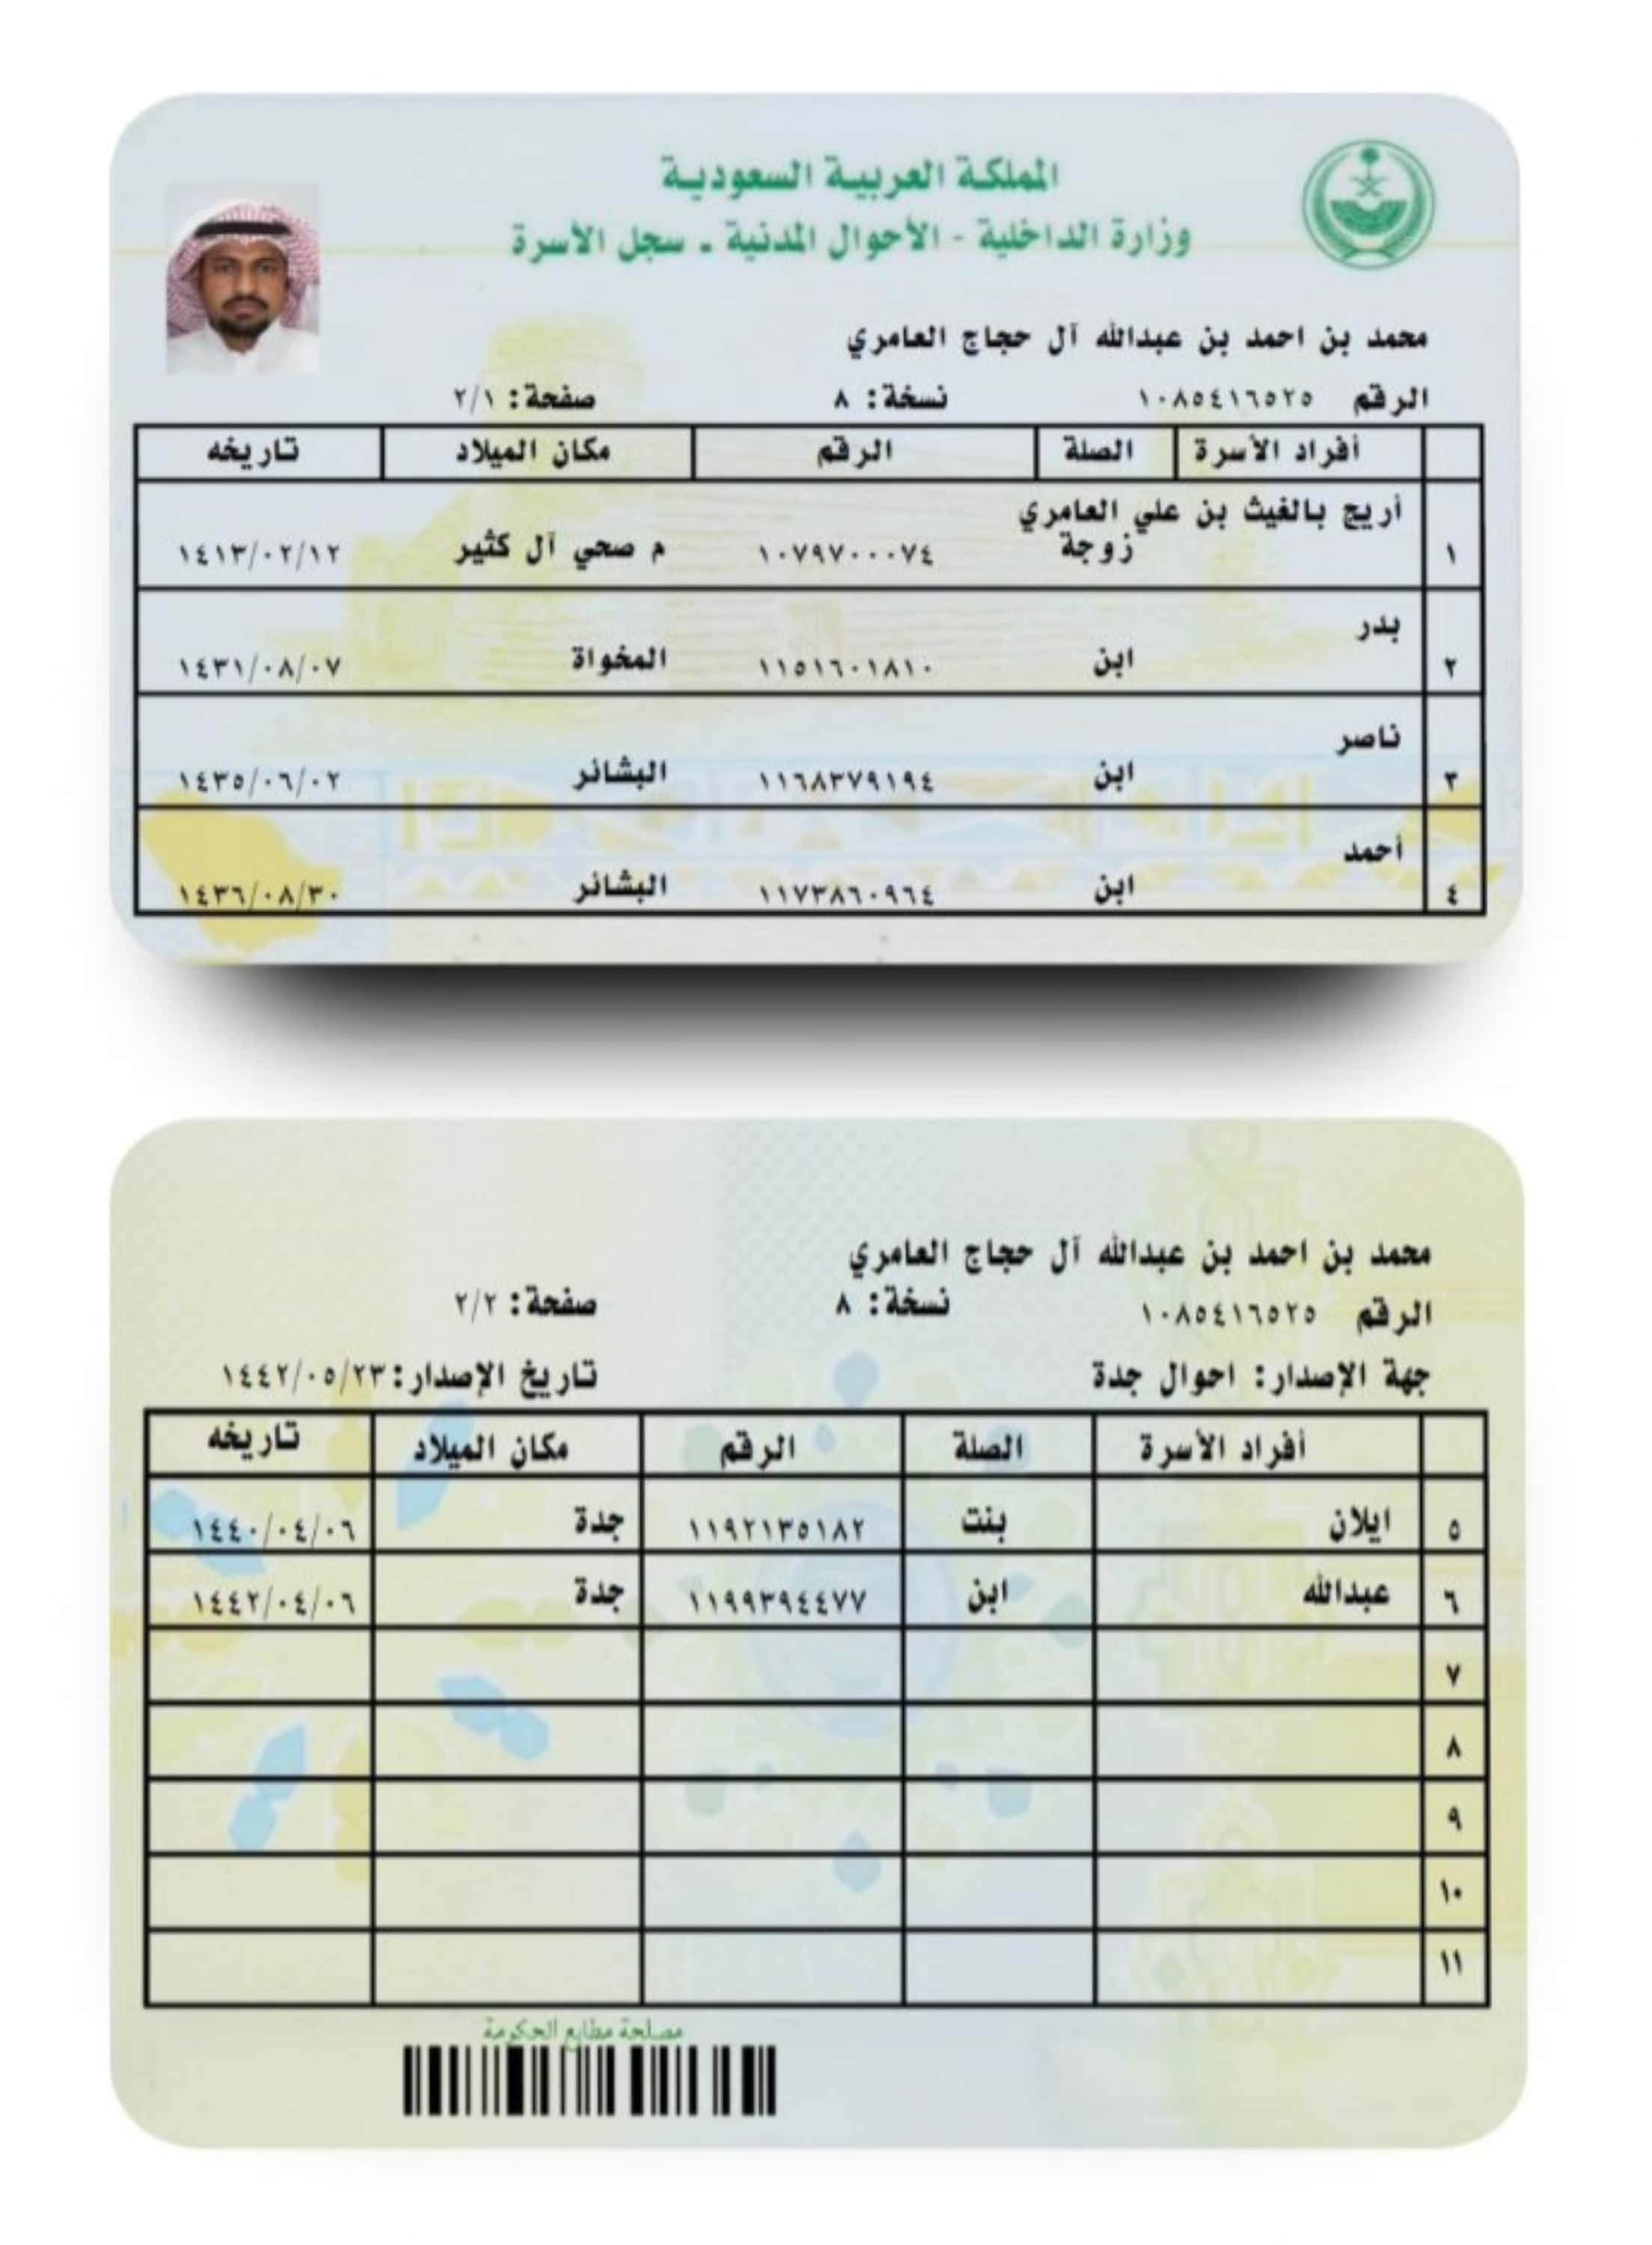 المملكة العربية السعودية
وزارة الداخلية - الأحوال المدنية - سجل الأسرة
محمد بن احمد بن عبدالله آل حجاج العامري
الرقم ١٠٨٥٤١٦٥٢٥ نسخة: ٨ صفحة: ٢/١
أفراد الأسرة الصلة الرقم مكان الميلاد تاريخه
أريج بالغيث بن علي العامري
١ زوجة ١٠٧٩٧٠٠٠٧٤ م صحي آل كثير ١٤١٣/٠٢/١٢
بدر
٢ ابن ١١٥١٦٠١٨١٠ المخواة ١٤٣١/٠٨/٠٧
ناصر
٣ ابن ١١٦٨٣٧٩١٩٤ البشائر ١٤٣٥/٠٦/٠٢
أحمد
٤ ابن ١١٧٣٨٦٠٩٦٤ البشائر ١٤٣٦/٠٨/٣٠
محمد بن احمد بن عبدالله آل حجاج العامري
الرقم ١٠٨٥٤١٦٥٢٥ نسخة: ٨ صفحة: ٢/٢
جهة الإصدار: احوال جدة تاريخ الإصدار: ١٤٤٢/٠٥/٢٣
أفراد الأسرة الصلة الرقم مكان الميلاد تاريخه
٥ ايلان بنت ١١٩٢١٣٥١٨٢ جدة ١٤٤٠/٠٤/٠٦
٦ عبدالله ابن ١١٩٩٣٩٤٤٧٧ جدة ١٤٤٢/٠٤/٠٦
٧
٨
٩
١٠
١١
مصلحة مطابع الحكومة